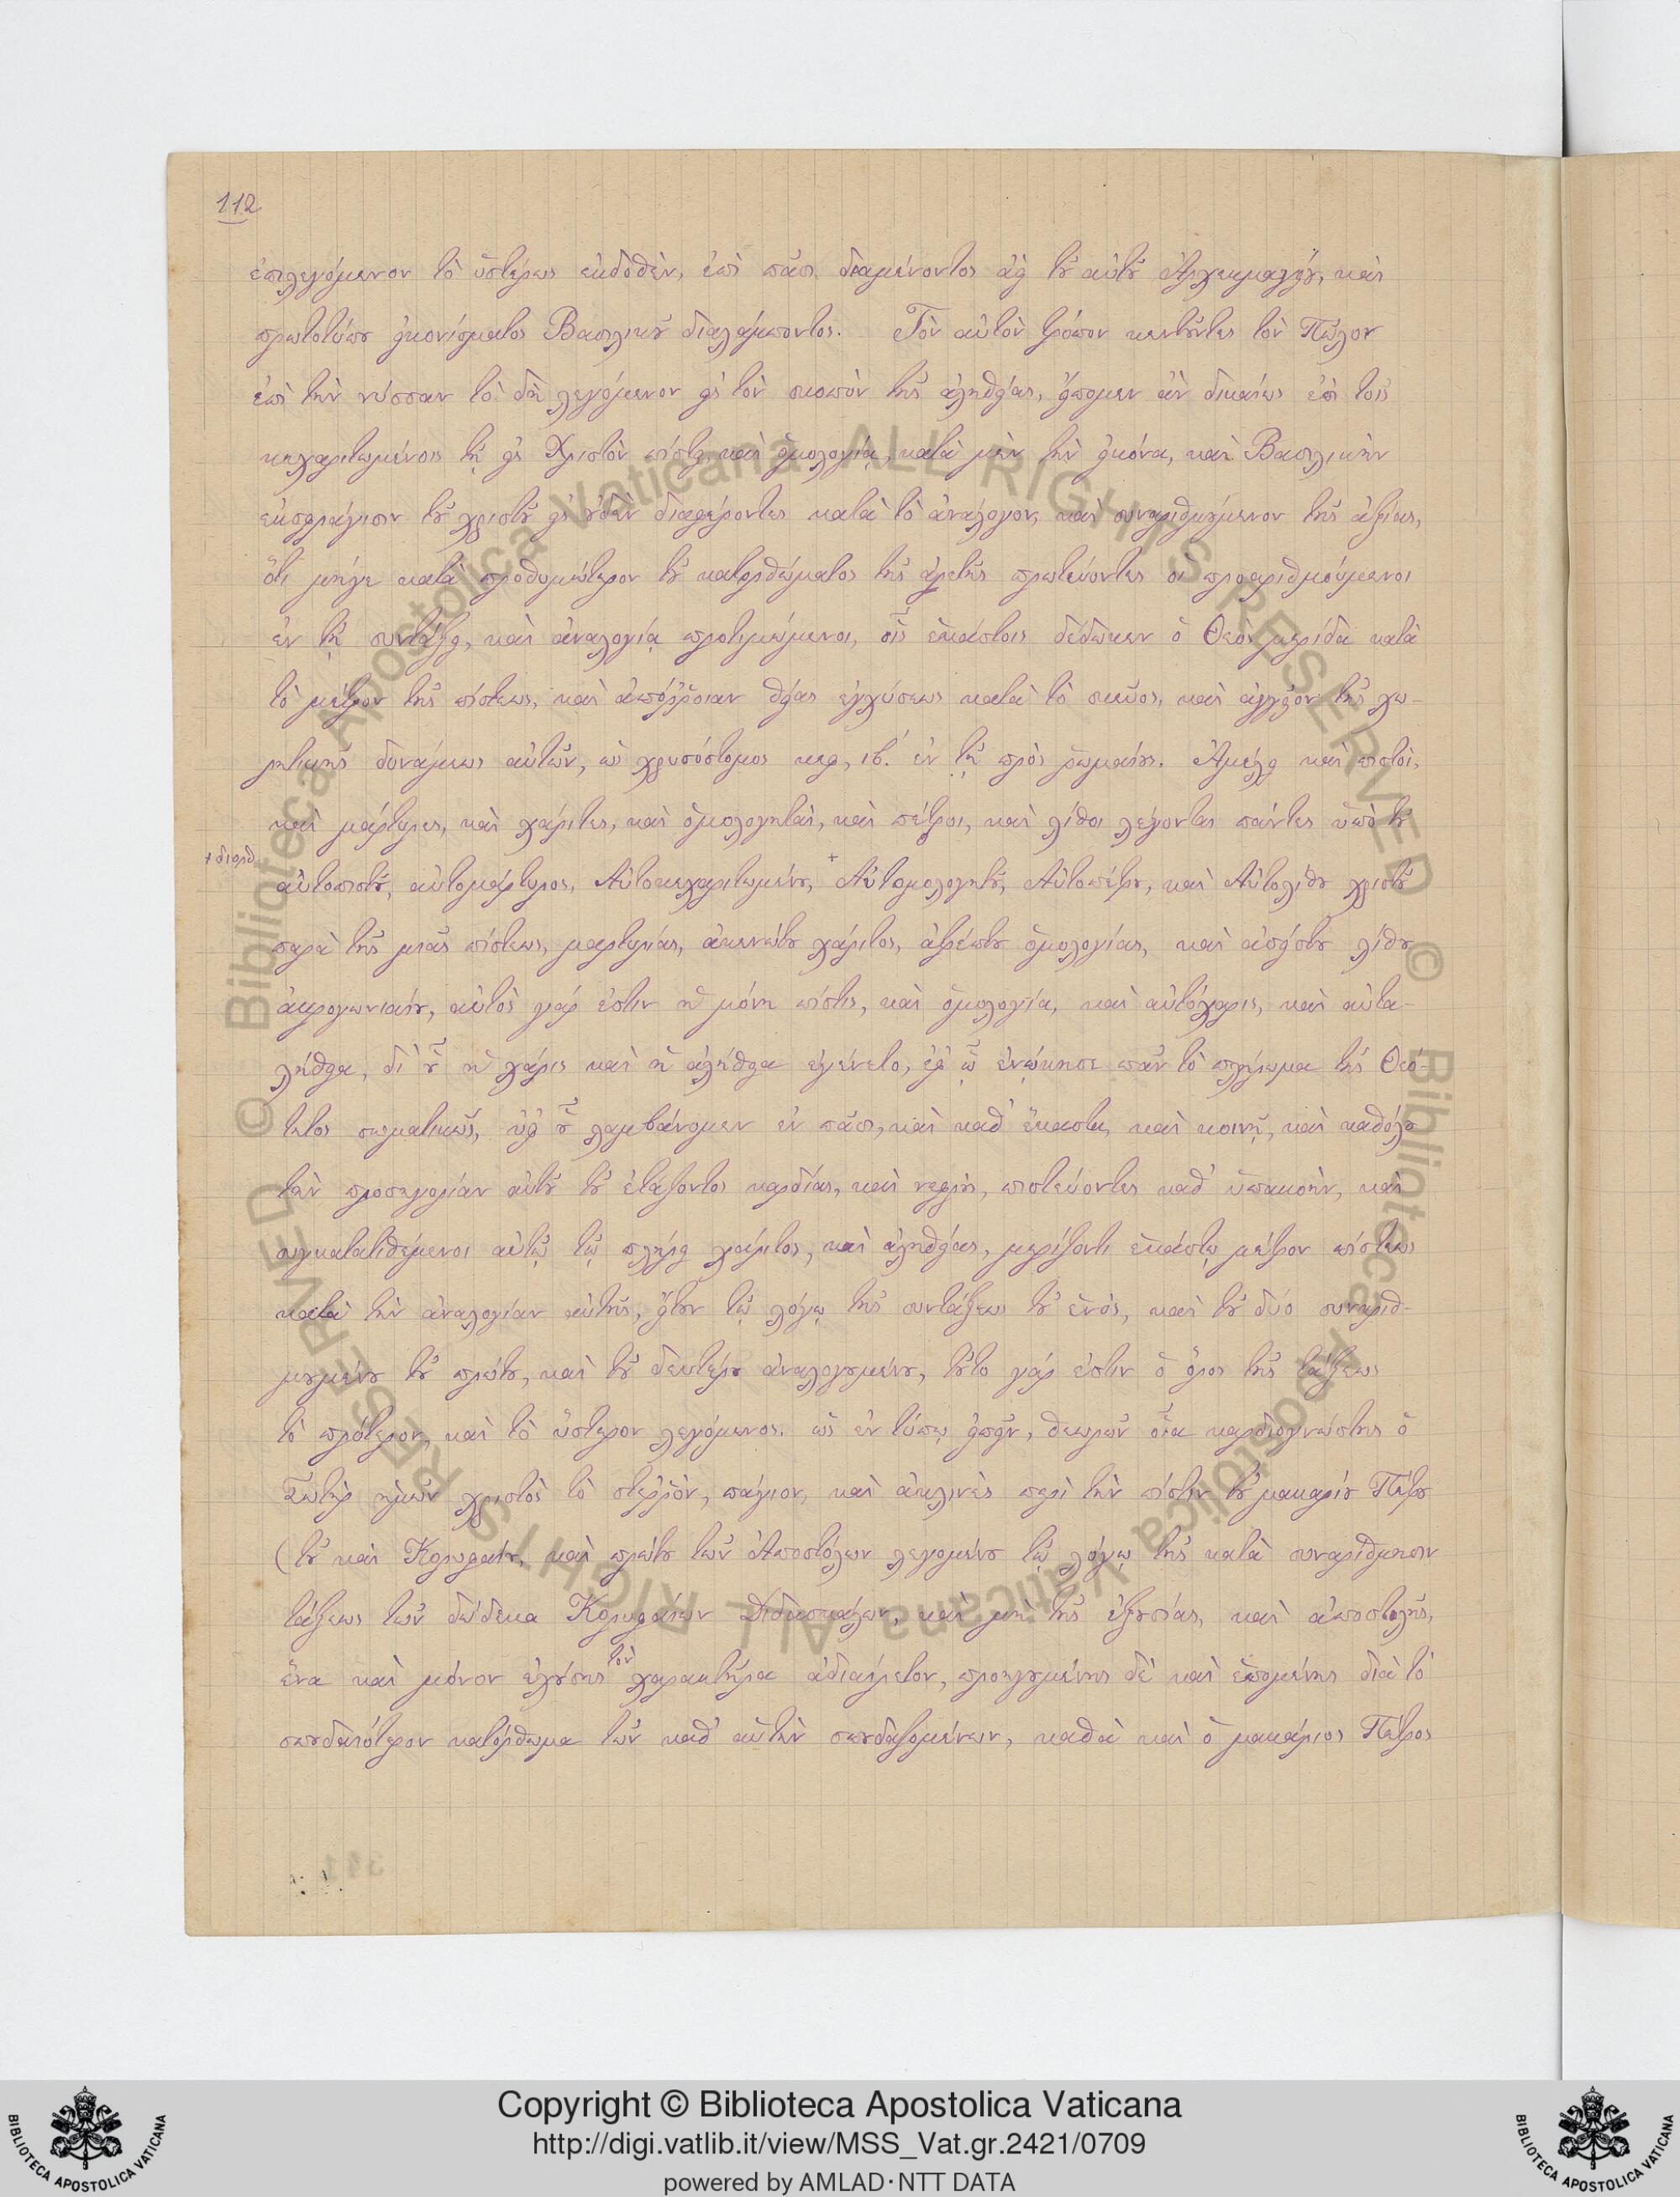 112
ἐπιλεγόμενον τὸ ὕστερως ἐκδοθὲν, ἐπὶ πᾶσι διαμένοντος ἀεὶ τοῦ αὐτοῦ καὶ
πρωτοτύπου εἰκονίσματος Βασιλικοῦ διαλάμποντος. Τὸν αὐτὸν τρόπον κεντοῦντες τὸν Πῶλον
ἐπὶ τὴν νύσσαν τὸ δὴ λεγόμενον εἰς τὸν σκοπὸν τῆς ἀληθείας, εἴπομεν ἂν δικαίως ἐπὶ τοῖς
κεχαριτωμένοις τῇ εἰς Χριστὸν πίστει καὶ ὁμολογίᾳ, κατὰ μὲν τὴν εἰκόνα, καὶ Βασιλικὴν
ἐκσφράγισιν τοῦ χριστοῦ εἰς οὐδὲν διαφέροντες κατὰ τὸ ἀνάλογον, καὶ συναριθμούμενον τῆς ἀξίας,
ὅτι μήγε κατὰ προθυμώτερον τοῦ κατορθώματος τῆς ἀρετῆς πρωτεύοντες οἱ προαριθμούμενοι
ἐν τῇ συντάξει, καὶ ἀναλογίᾳ προτιμώμενοι, οἷς ἑκάστοις δέδωκεν ὁ Θεὸς μερίδα κατὰ
τὸ μέτρον τῆς πίστεως, καὶ ἀπόῤῥοιαν θείας ἐγχύσεως κατὰ τὸ σκεῦος, καὶ ἀγγεῖον τῆς χω-
ρητικῆς δυνάμεως αὐτῶν, ὡς χρυσόστομος κεφ. ιβ΄. ἐν τῇ πρὸς ῥωμαίους. Ἀμέλει καὶ πιστοὶ,
καὶ μάρτυρες, καὶ χάριτες, καὶ ὁμολογηταὶ, καὶ πέτροι, καὶ λίθοι λέγονται πάντες ὑπὸ τοῦ
αὐτοπιστοῦ, αὐτομάρτυρος, Αὐτοκεχαριτωμένου, + Αὐτομολογητοῦ, Αὐτοπέτρου, καὶ Αὐτολίθου χριστοῦ
παρὰ τῆς μιᾶς πίστεως, μαρτυρίας, ἀκενώτου χάριτος, ἀτρέπτου ὁμολογίας, καὶ ἀσείστου λίθου
ἀκρογωνιαίου, αὐτὸς γάρ ἐστιν ἡ μόνη πίστις, καὶ ὁμολογία, καὶ αὐτόχαρις, καὶ αὐτα-
λήθεια, δι᾽ οὗ ἡ χάρις καὶ ἡ ἀλήθεια ἐγένετο, ἐφ᾽ ᾧ ἐνῴκησε πᾶν τὸ πλήρωμα τῆς Θεό-
τητος σωματικῶς, ὑφ᾽ οὗ λαμβάνομεν ἐν πᾶσι, καὶ καθ᾽ ἕκαστα, καὶ κοινῇ, καὶ καθόλου
τὴν προσηγορίαν αὐτοῦ τοῦ ἐτάζοντος καρδίας, καὶ νεφροὺς, πιστεύοντες καθ᾽ ὑπακοὴν, καὶ
συγκατατιθέμενοι αὐτῷ τῷ πλήρει χάριτος, καὶ ἀληθείας, μερίζοντι ἑκάστῳ μέτρον πίστεως
κατὰ τὴν ἀναλογίαν αὐτῆς, ἤτουν τῷ λόγῳ τῆς συντάξεως τοῦ ἑνὸς, καὶ τοῦ δύο συναριθ-
μουμένου τοῦ πρώτου, καὶ τοῦ δευτέρου ἀναλογουμένου, τοῦτο γάρ ἐστιν ὁ ὅρος τῆς τάξεως
τὸ πρότερον, καὶ τὸ ὕστερον λεγόμενος. ὡς ἐν τύπῳ εἰπεῖν, θεωρῶν οἷα καρδιογνώστης ὁ
Σωτὴρ ἡμῶν χριστὸς τὸ στεῤῥὸν, πάγιον, καὶ ἀκλινὲς περὶ τὴν πίστιν τοῦ μακαρίου Πέτρου
(τοῦ καὶ Κορυφαίου, καὶ πρώτου τῶν Ἀποστόλων λεγομένου τῷ λόγῳ τῆς κατὰ συναρίθμησιν
τάξεως τῶν δώδεκα Κορυφαίων Διδασκάλων, καὶ μὴ τῆς ἐξουσίας, καὶ ἀποστολῆς,
ἕνα καὶ μόνον ἐχούσης τὸν χαρακτῆρα ἀδιαίρετον, προηγουμένης δὲ καὶ ἑπομένης διὰ τὸ
σπουδαιότερον κατόρθωμα τῶν καθ᾽ αὑτὴν σπουδαζομένων, καθὰ καὶ ὁ μακάριος Πέτρος
© Biblioteca Apostolica Vaticana ALL RIGHTS RESERVED
© Biblioteca Apostolica Vaticana ALL RIGHTS RESERVED
Copyright © Biblioteca Apostolica Vaticana
http://digi.vatlib.it/view/MSS_Vat.gr.2421/0709
powered by AMLAD·NTT DATA
BIBLIOTECA APOSTOLICA VATICANA
BIBLIOTECA APOSTOLICA VATICANA